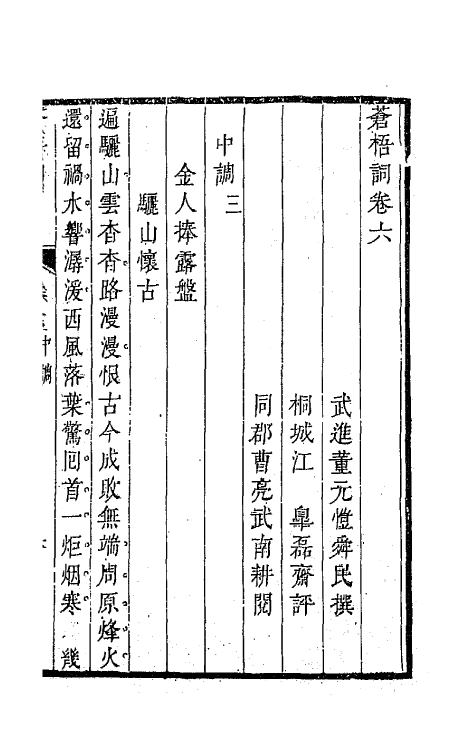 蒼梧詞卷六
武進董元愷舜民撰
桐城江　臯磊齋評
同郡曹亮武南耕閱
中調三
金人捧露盤
驪山懷古
遍驪山雲杳杳路漫漫恨古今成敗無端周原烽火
還留禍水響潺湲西風落葉驚回首一炬烟寒　幾